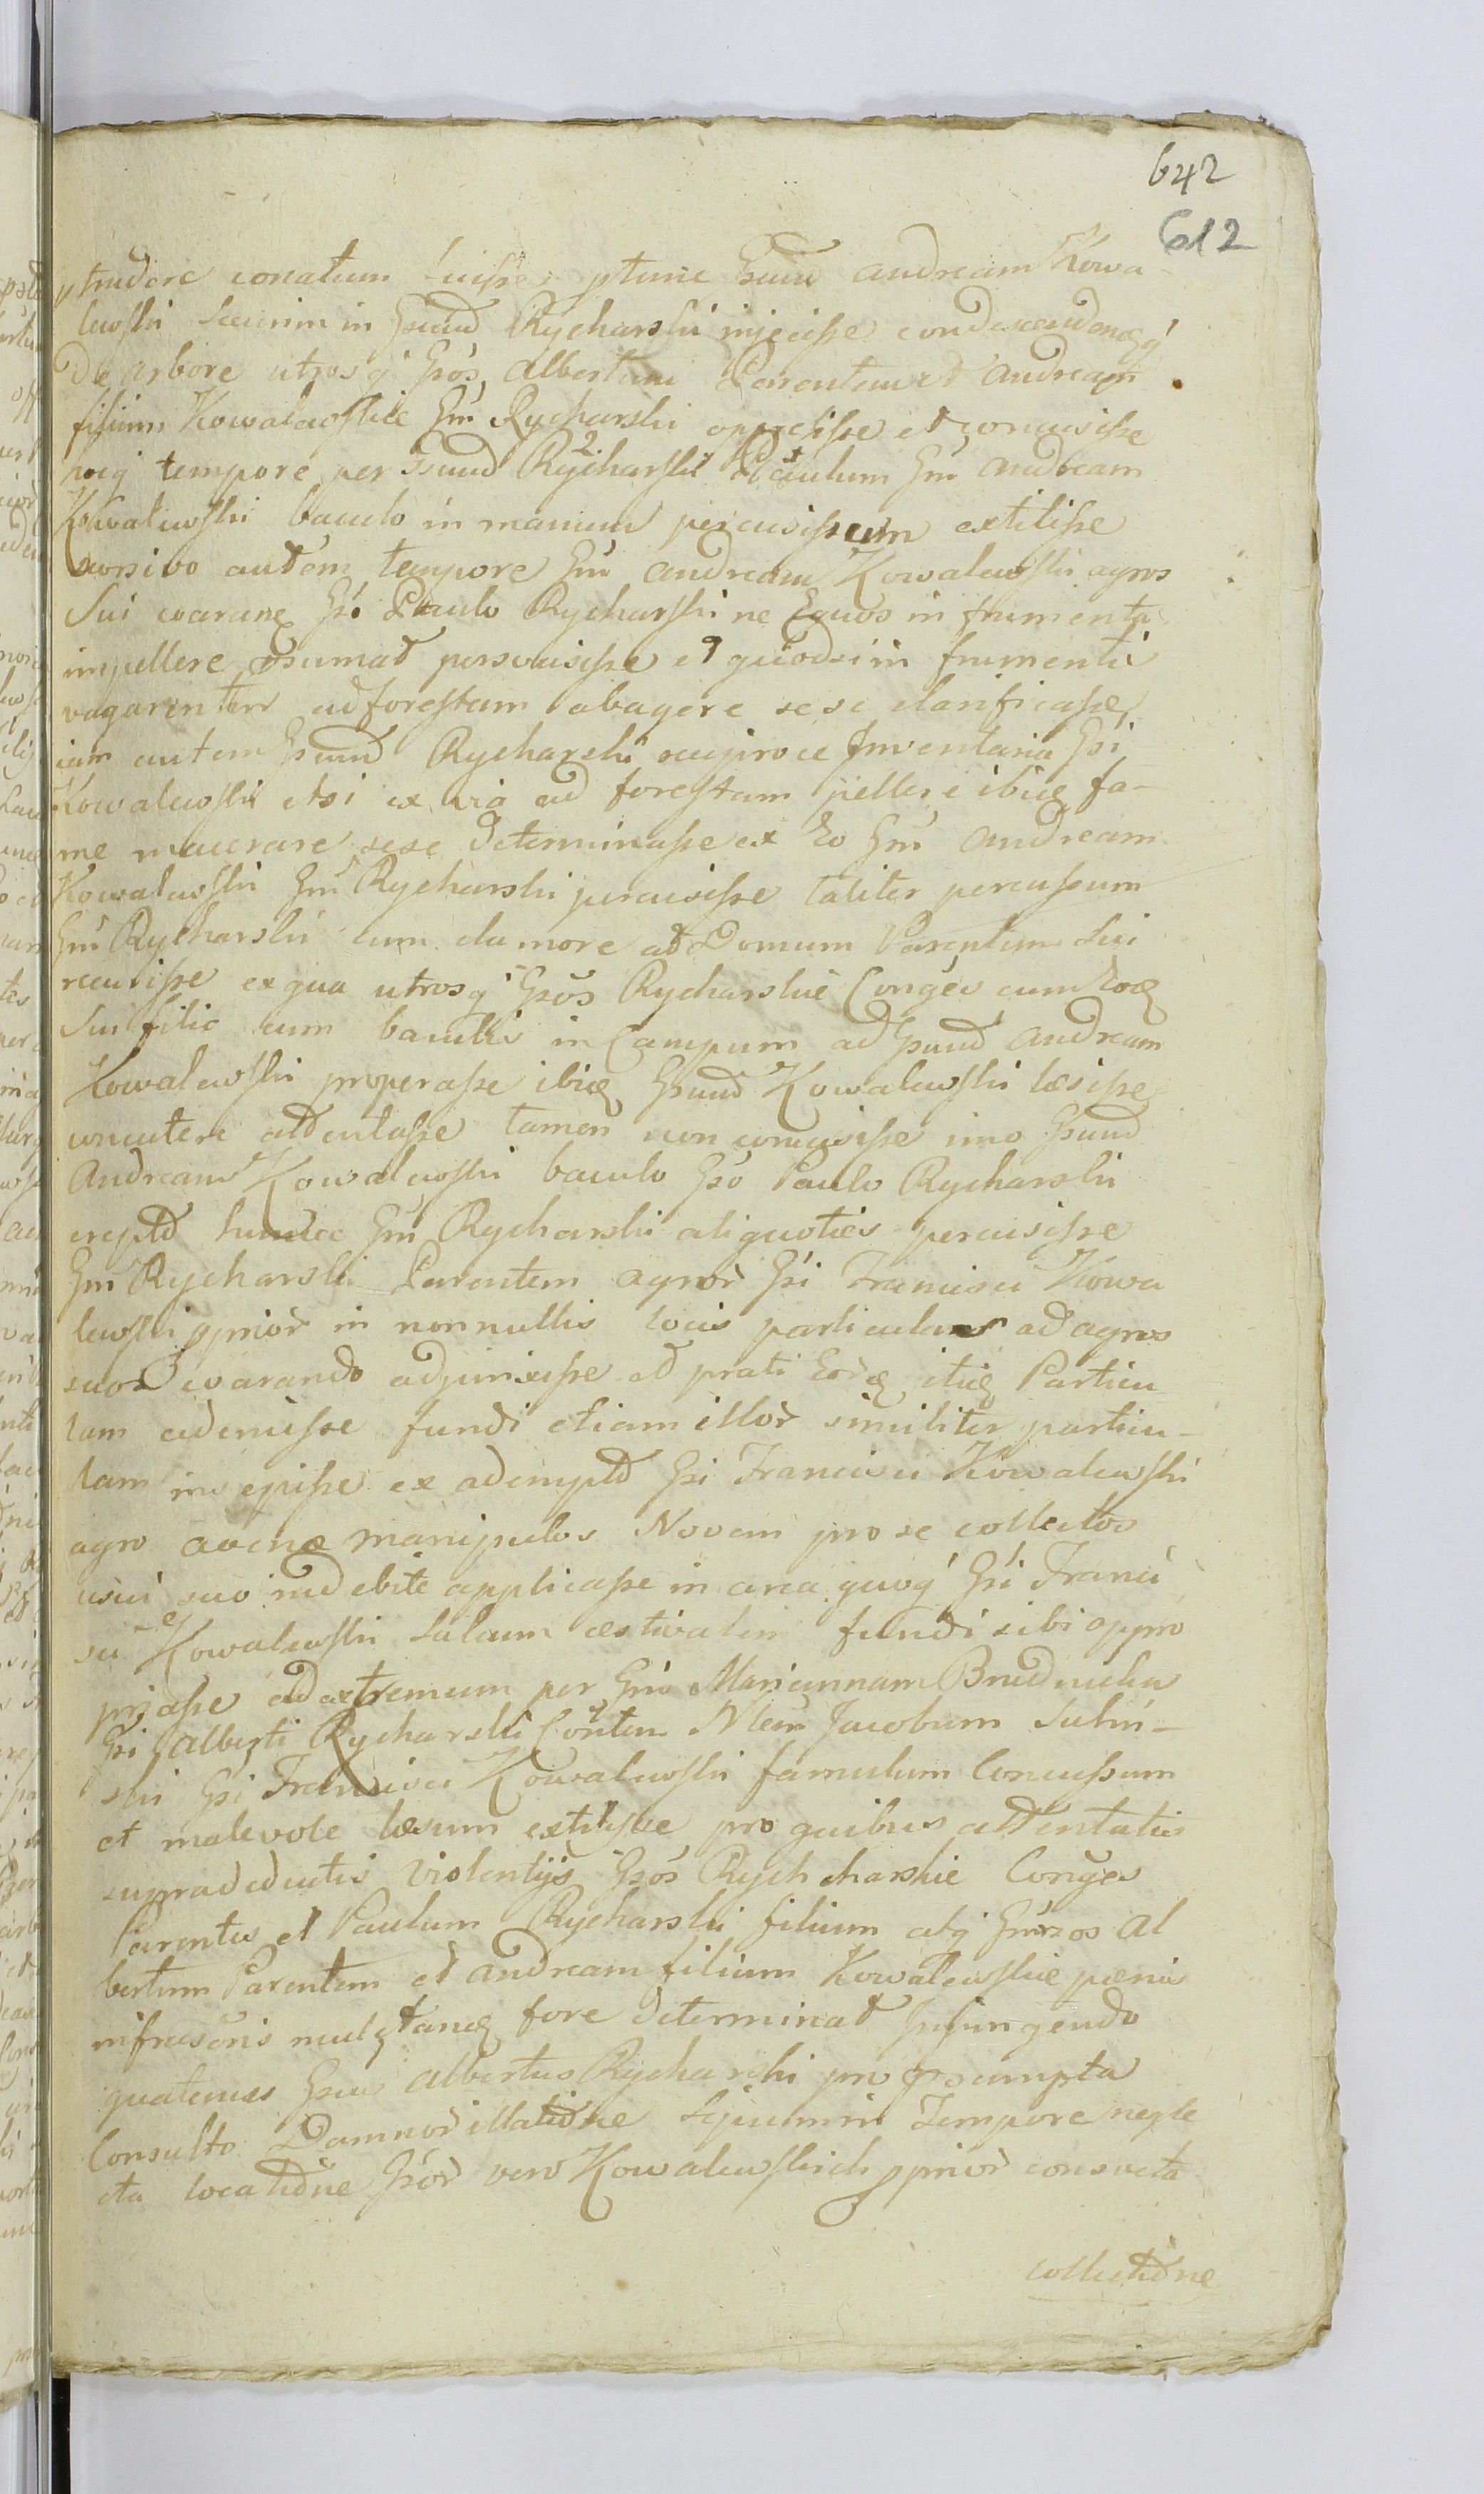 642
612
ptrudere conatum fuisse ptunc Gsum Andream Kowa-
lewski securim in Gsum Rycharski injecisse condescendenq
de arbore utrosq Gsos Albertum Parentem et Andream
filium Kowalewskie Gsm Rycharski oppressisse et concusisse
tempore per Gsum Rycharski Paulum Gsm Andream
Kowalewski baculo in manum percussum extitisse
autem tempore Gsm Andream Kowalewski agros
Sui Gso Paulo Rycharski ne Equos in frumenta
impellere psumat persvasisse et quodsi in frumentis
vagarentur ad forestam abagere sese clarificasse
iam autem Gsum Rycharski reciproce Inventaria Gsi
Kowalewski etsi ex via ad forestam pellere ibiq fa-
me macerare sese determinasse ex Eo Gsm Andream
Kowalewski Gsm Rycharski percusisse taliter percussum
Gsm Rycharski cum clamore ad Domum Parentum Sui
recurisse ex qua utrosq Gsos Rycharskie Conges cum Eoq
Sui filio cum baculis in Campum ad Gsum Andream
Kowalewski properasse ibiq Gsum Kowalewski læsisse
concutere attentasse tamen non concusisse imo Gsum
Andream Kowalewski baculo Gso Paulo Rycharski
erepto Gsm Rycharski aliquoties percusisse
Gsm Rycharski Parentem agror Gsi Francisci Kowa
lewski pprior in nonnullis locis particulas ad agros
suos coarando adjunxisse et prati Eorq itiq Particu
lam ademisse fundi etiam illor similiter particu-
lam ex adempto Gsi Francisci Kowalewski
agro avenæ manipulos Novem pro se collectos
usui suo indebite applicasse in area quoq Gsi Franci
sci Kowalewski Sulcum æstivalem fundi sibi appro
priasse ad extremum per Gsm Mariannam Brudnicka
Gsi Alberti Rycharski Contem Nlem Jacobum Sulin-
ski Gsi Francisci Kowalewski famulum Concussum
et malevole læsum extitisse pro quibus attentatis
supradeductis violentijs Gsos Rych charskie Conges
Parentes et Paulum Rycharski filium atq Gsos Al
bertum Parentem et Andream filium Kowalewskie pænis
infrascris mulctanq fore determinat Injungendo
quatenus Gsus Albertus Rycharski pro psumpta
Consulto Damnor illatione Sepium in Tempore negle
cta locatione Gsor vero Kowalewskich pprior consveta
collectione